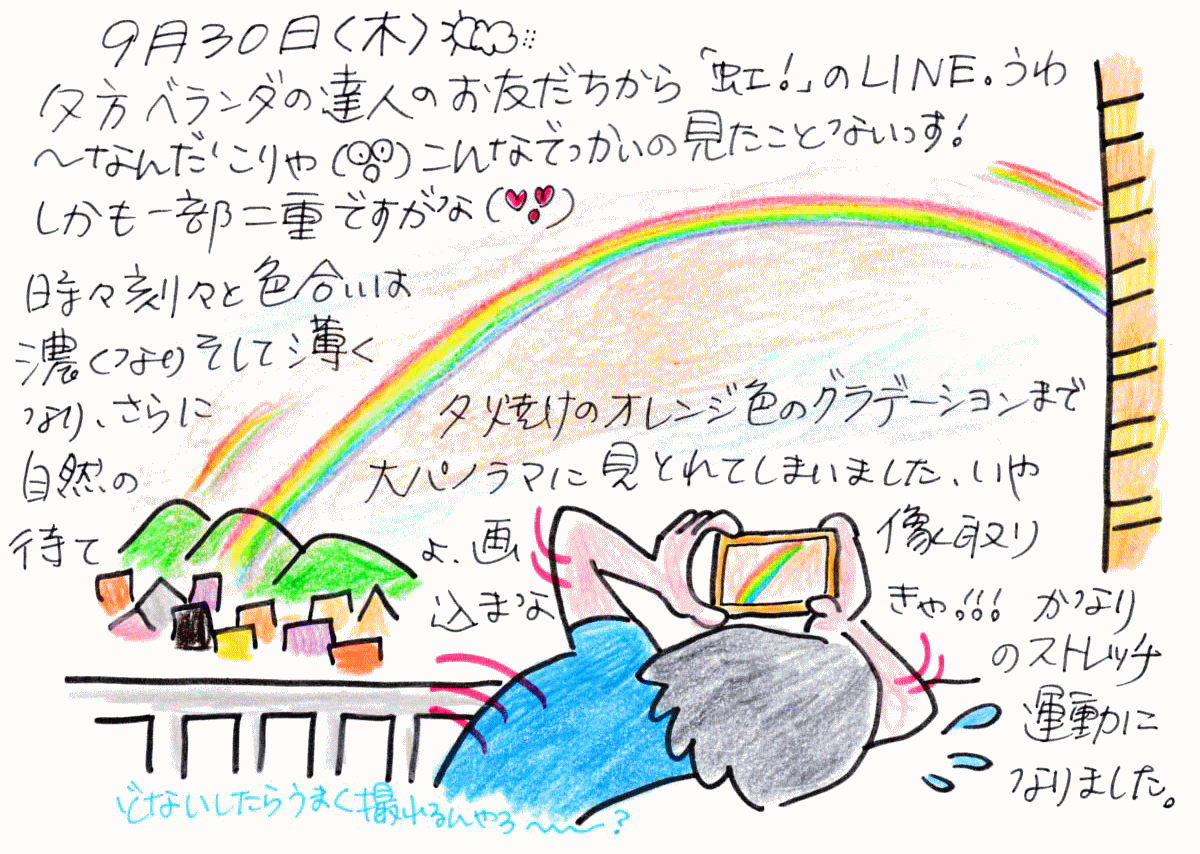 9月30日(木)
夕方ベランダの達人のお友だちから「虹!」のLINE。うわ
〜なんだこりゃ(

)こんなでっかいの見たことないっす!
しかも一部二重ですがな(

)
時々刻々と色合いは
濃くなりそして薄く
なり、さらに
自然の
夕焼けのオレンジ色のグラデーションまで
大パノラマに見とれてしまいました、いや
待てよ、画像取り
込まなきゃ!!! かなり
のストレッチ
運動に
なりました。
どないしたらうまく撮れるんやろ〜〜〜?